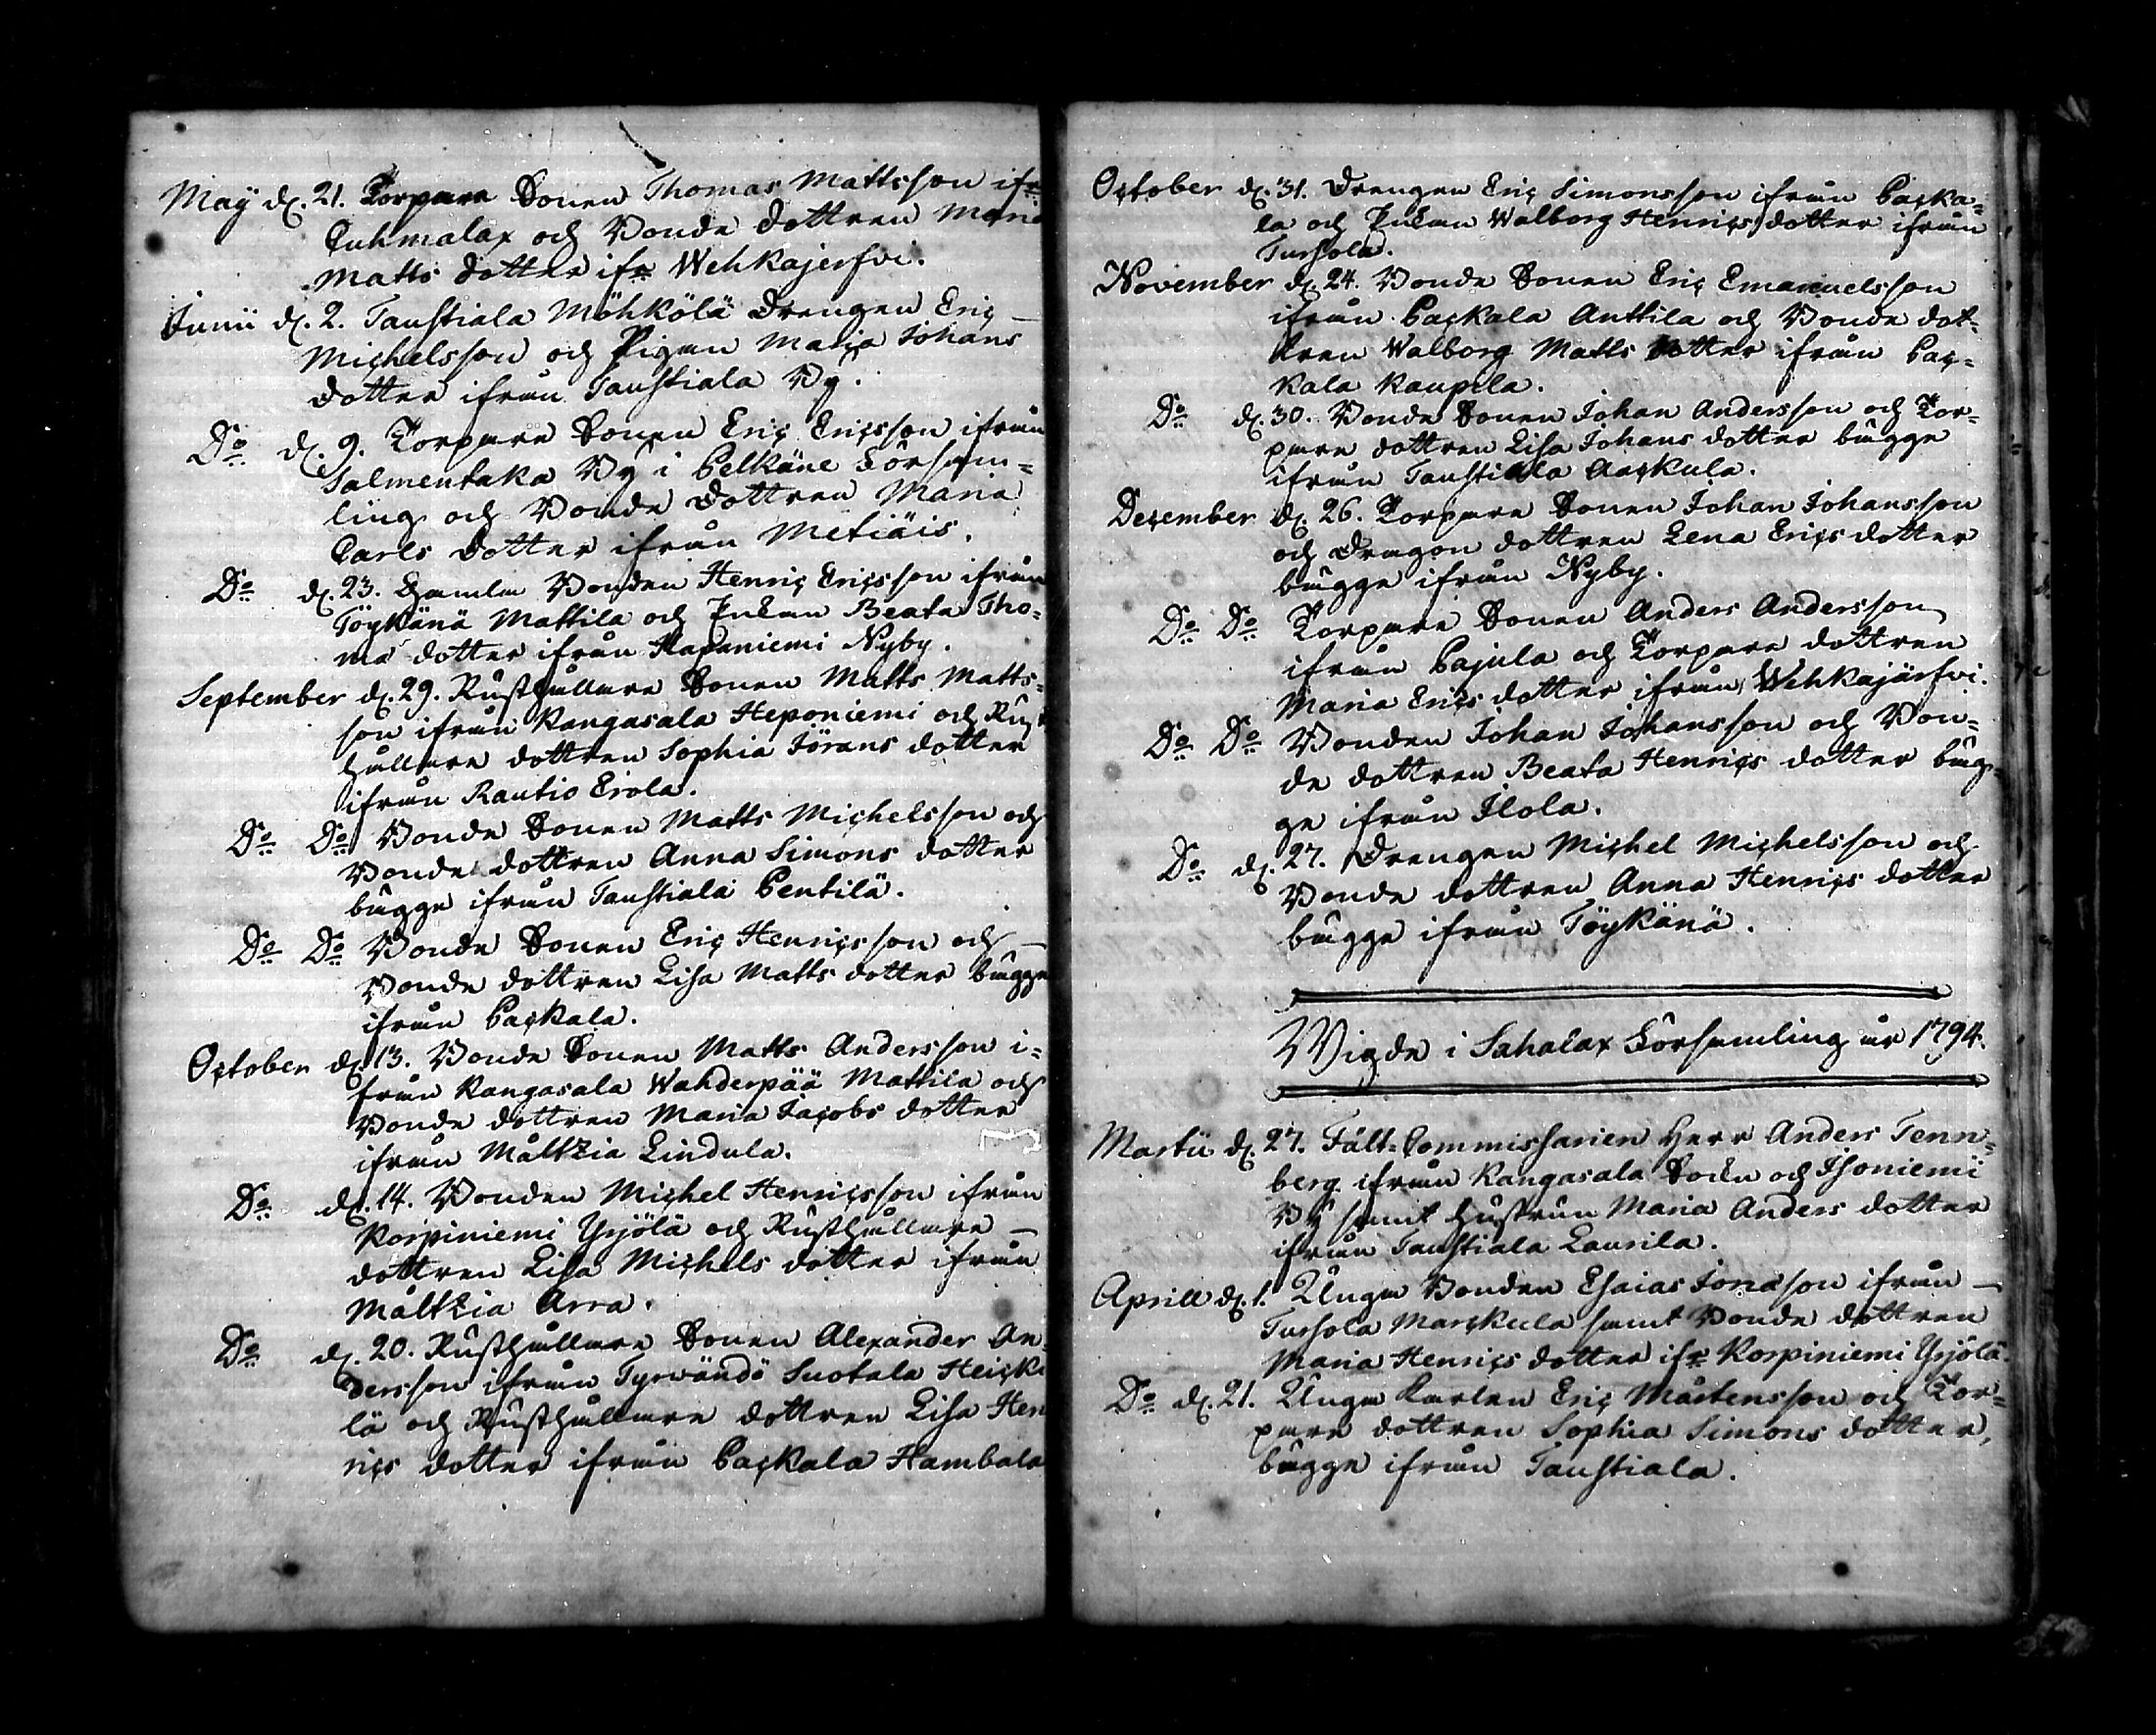 May d. 21. Torpare Sonen Thomas Mattsson ifr.
Cuhmalax och Bonde dottren Maria
Matts dotter ifr Wehkajerfvi.
Junii d. 2. Taustiala Möhkölä Drengen Eric
Michelsson och Pigan Maria Johans
dotter ifrån Taustiala By.
Do d. 9. Torpare Sonen Eric Ericsson ifrån
Salmentaka By i Pelkäne Försam=
ling och Bonde dottren Maria
Carls dotter ifrån Metiäis.
Do d. 23. Gamla Bonden Henric Ericsson ifrån
Töykänä Mattila och Enkan Beata Tho=
mä dotter ifrån Hapaniemi Nyby.
September d. 29. Rusthållare Sonen Matts Matts=
son ifrån Kangasala Heponiemi och Rust
hållare dottren Sophia Jörans dotter
ifrån Rautio Erola.
Do Do Bonde Sonen Matts Michelsson och
Bonde dottren Anna Simons dotter
bägge ifrån Taustiala Pentilä.
Do Do Bonde Sonen Eric Henricsson och
Bonde dottren Lisa Matts dotter bägge
ifrån Packala.
October d. 13. Bonde Sonen Matts Andersson i=
från Kangasala Wahderpää Mattila och
Bonde dottren Maria Jacobs dotter
ifrån Måltzia Lindula.
Do d. 14. Bonden Michel Henricsson ifrån
Korpiniemi Yrjölä och Rusthållare
dottren Lisa Michels dotter ifrån
Måltzia Arra.
Do d. 20. Rusthållare Sonen Alexander An=
dersson ifrån Tyrwändö Suotala Heicki
lä och Rusthållare dottren Lisa Hen
rics dotter ifrån Packala Hambala
October d. 31. Drengen Eric Simonsson ifrån Packa=
la och Enkan Walborg Henrics dotter ifrån
Tursola.
November d. 24. Bonde Sonen Eric Emanuelsson
ifrån Packala Anttila och Bonde dot=
tren Walborg Matts dotter ifrån Pac=
kala Kaupila.
Do d. 30. Bonde Sonen Johan Andersson och Tor=
pare dottren Lisa Johans dotter bägge
ifrån Taustiala Aackula.
December d. 26. Torpare Sonen Johan Johansson
och Dragon dottren Lena Erics dotter
bägge ifrån Nyby.
Do Do Torpare Sonen Anders Andersson
ifrån Pajula och Torpare dottren
Maria Erics dotter ifrån Wehkajärfvi.
Do Do Bonden Johan Johansson och Bon=
de dottren Beata Henrics dotter bäg=
ge ifrån Ilola.
Do d. 27. Drengen Michel Michelsson och
Bonde dottren Anna Henrics dotter
bägge ifrån Töykänä.
Wigde i Sahalax Församling år 1794.
Martii d. 27. Fält=Commissarien Herr Anders Tenn=
berg ifrån Kangasala Sockn och Isoniemi
By samt Hustrun Maria Anders dotter
ifrån Taustiala Laurila.
Aprill d. 1. Unga Bonden Esaias Jonasson ifrån
Tursola Marckula samt Bonde dottren
Maria Henrics dotter ifr Korpiniemi Yrjölä.
Do d. 21. Unga Karlen Eric Mårtensson och Tor=
pare dottren Sophia Simons dotter,
bägge ifrån Taustiala.